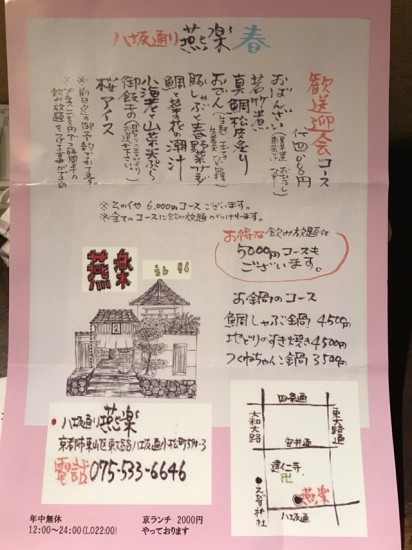 八坂通り 燕楽 春
歓送迎会コース
おばんざい
若竹煮
真鯛松皮造り
おでん
豚しゃぶと春野菜サラダ
鯛と菜の花の潮汁
小海老と山菜天ぷら
御飯
桜アイス
※その他 6,000円コースございます。
※全てのコースに飲み放題
お得な飲み放題付
5000円コースも
ございます。
燕楽
お鍋のコース
鯛しゃぶ鍋 4500円
地どりのすき焼き 4500円
つくねちゃんこ鍋 3500円
八坂通り 燕楽
京都市東山区東大路八坂通小松町594-3
電話 075-533-6646
四条通
大和大路
東大路通
安井通
建仁寺
卍
えびす神社
燕楽
八坂通
年中無休
12:00〜24:00(LO22:00)
京ランチ 2000円
やっております